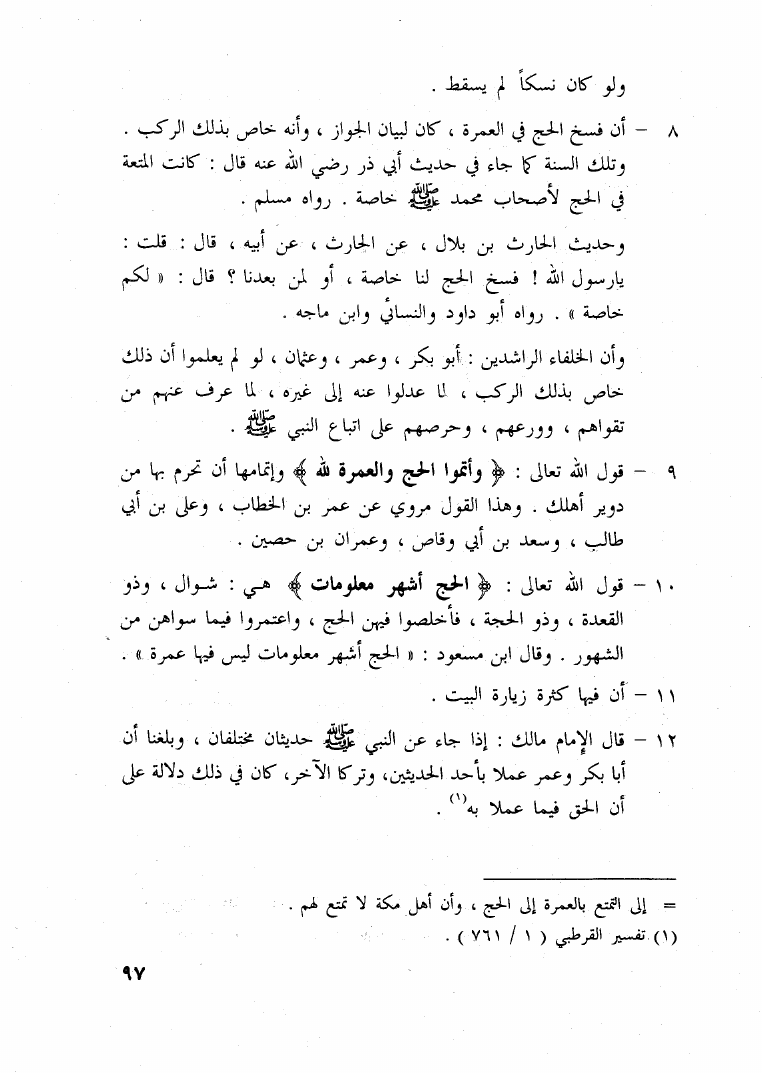 ولو كان نسكاً لم يسقط .
٨ – أن فسخ الحج في العمرة ، كان لبيان الجواز ، وأنه خاص بذلك الركب .
وتلك السنة كما جاء في حديث أبي ذر رضي الله عنه قال : كانت المتعة
في الحج لأصحاب محمد ﷺ خاصة . رواه مسلم .
وحديث الحارث بن بلال ، عن الحارث ، عن أبيه ، قال : قلت :
يارسول الله ! فسخ الحج لنا خاصة ، أو لمن بعدنا ؟ قال : « لكم
خاصة » . رواه أبو داود والنسائي وابن ماجه .
وأن الخلفاء الراشدين : أبو بكر ، وعمر ، وعثمان ، لو لم يعلموا أن ذلك
خاص بذلك الركب ، لما عدلوا عنه إلى غيره ، لما عرف عنهم من
تقواهم ، وورعهم ، وحرصهم على اتباع النبي ﷺ .
٩ – قول الله تعالى : ﴿ وأتموا الحج والعمرة لله ﴾ وإتمامها أن تحرم بها من
دوير أهلك . وهذا القول مروي عن عمر بن الخطاب ، وعلى بن أبي
طالب ، وسعد بن أبي وقاص ، وعمران بن حصين .
١٠ – قول الله تعالى : ﴿ الحج أشهر معلومات ﴾ هي : شوال ، وذو
القعدة ، وذو الحجة ، فأخلصوا فيهن الحج ، واعتمروا فيما سواهن من
الشهور . وقال ابن مسعود : « الحج أشهر معلومات ليس فيها عمرة » .
١١ – أن فيها كثرة زيارة البيت .
١٢ – قال الإمام مالك : إذا جاء عن النبي ﷺ حديثان مختلفان ، وبلغنا أن
أبا بكر وعمر عملا بأحد الحديثين، وتركا الآخر، كان في ذلك دلالة على
أن الحق فيما عملا به(١) .
= إلى التمتع بالعمرة إلى الحج ، وأن أهل مكة لا تمتع لهم .
(١) تفسير القرطبي ( ١ / ٧٦١ ) .
٩٧